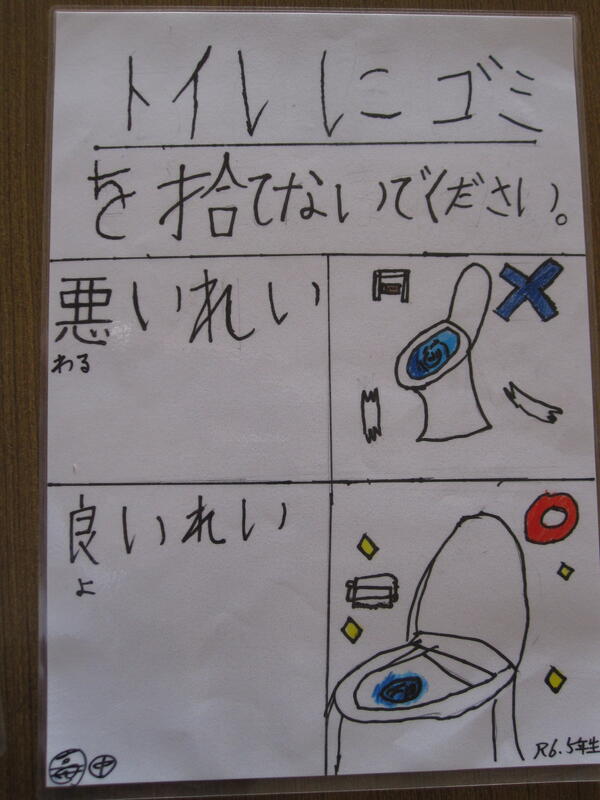 トイレにゴミ
を捨てないでください。
悪いれい
わる
良いれい
よ
R6.5年生
中